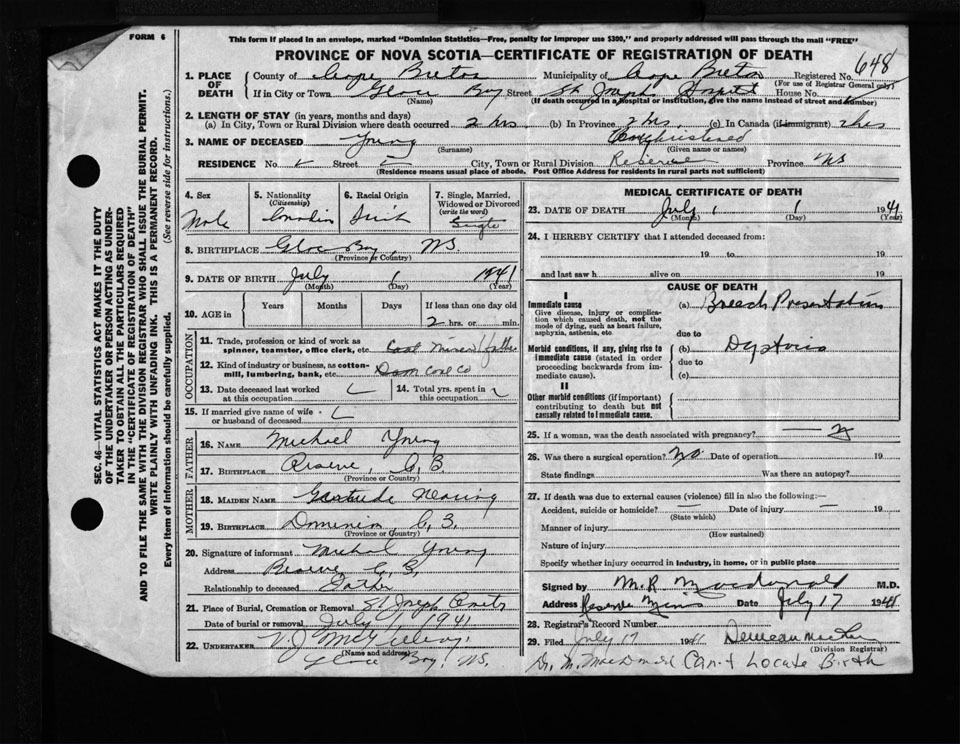 FORM 6
This form if placed in an envelope, marked "Dominion Statistics—Free, penalty for improper use $300," and properly addressed will pass through the mail "FREE"
PROVINCE OF NOVA SCOTIA—CERTIFICATE OF REGISTRATION OF DEATH
SEC. 46—VITAL STATISTICS ACT MAKES IT THE DUTY
OF THE UNDERTAKER OR PERSON ACTING AS UNDER-
TAKER TO OBTAIN ALL THE PARTICULARS REQUIRED
IN THE "CERTIFICATE OF REGISTRATION OF DEATH"
AND TO FILE THE SAME WITH THE DIVISION REGISTRAR WHO SHALL ISSUE THE BURIAL PERMIT.
WRITE PLAINLY WITH UNFADING INK. THIS IS A PERMANENT RECORD.
Every item of information should be carefully supplied. (See reverse side for instructions.)
1. PLACE OF DEATH County of Cape Breton Municipality of Cape Breton Registered No. 648
(For use of Registrar General only)
If in City or Town Glace Bay Street St Joseph Hospital House No.
(Name) (If death occurred in a hospital or institution, give the name instead of street and number)
2. LENGTH OF STAY (in years, months and days)
(a) In City, Town or Rural Division where death occurred 2 hrs (b) In Province 2 hrs. (c) In Canada (if immigrant) 2 hrs
3. NAME OF DECEASED Young
(Surname) (Given name or names)
RESIDENCE No. Street City, Town or Rural Division Reserve Province NS
(Residence means usual place of abode. Post Office Address for residents in rural parts not sufficient)
4. Sex 5. Nationality (Citizenship) 6. Racial Origin 7. Single, Married, Widowed or Divorced (write the word)
Male Canadian Irish Single
8. BIRTHPLACE Glace Bay, NS.
(Province or Country)
9. DATE OF BIRTH July 1 1941
(Month) (Day) (Year)
10. AGE in Years Months Days If less than one day old
2 hrs. or min.
OCCUPATION
11. Trade, profession or kind of work as spinner, teamster, office clerk, etc. Coal Miner (father
12. Kind of industry or business, as cotton-mill, lumbering, bank, etc. Dom Coal Co
13. Date deceased last worked at this occupation 14. Total yrs. spent in this occupation
15. If married give name of wife or husband of deceased
FATHER
16. NAME Michael Young
17. BIRTHPLACE Reserve, C B
(Province or Country)
MOTHER
18. MAIDEN NAME Gertrude Nearing
19. BIRTHPLACE Dominion, C. B.
(Province or Country)
20. Signature of informant Michael Young
Address Reserve C. B.
Relationship to deceased Father
21. Place of Burial, Cremation or Removal St Joseph
Date of burial or removal July 1 1941
22. UNDERTAKER V. J. McGillivray
(Name and address)
Glace Bay, NS.
MEDICAL CERTIFICATE OF DEATH
23. DATE OF DEATH July 1 1941
(Month) (Day) (Year)
24. I HEREBY CERTIFY that I attended deceased from:
19 to 19
and last saw h alive on 19
CAUSE OF DEATH
I
Immediate cause (a) Breech Presentation
Give disease, injury or complica-
tion which caused death, not the
mode of dying, such as heart failure,
asphyxia, asthenia, etc. due to
Morbid conditions, if any, giving rise to (b) Dystocia
immediate cause (stated in order due to
proceeding backwards from im-
mediate cause). (c)
II
Other morbid conditions (if important)
contributing to death but not
causally related to immediate cause.
25. If a woman, was the death associated with pregnancy?
26. Was there a surgical operation? No Date of operation 19
State findings Was there an autopsy?
27. If death was due to external causes (violence) fill in also the following:—
Accident, suicide or homicide? Date of injury 19
(State which)
Manner of injury
(How sustained)
Nature of injury
Specify whether injury occurred in industry, in home, or in public place
Signed by M. R. Macdonald M.D.
Address Reserve Mines Date July 17 1941
28. Registrar's Record Number
29. Filed July 17 1941
(Division Registrar)
Dr. M. MacDonald Can't Locate Birth